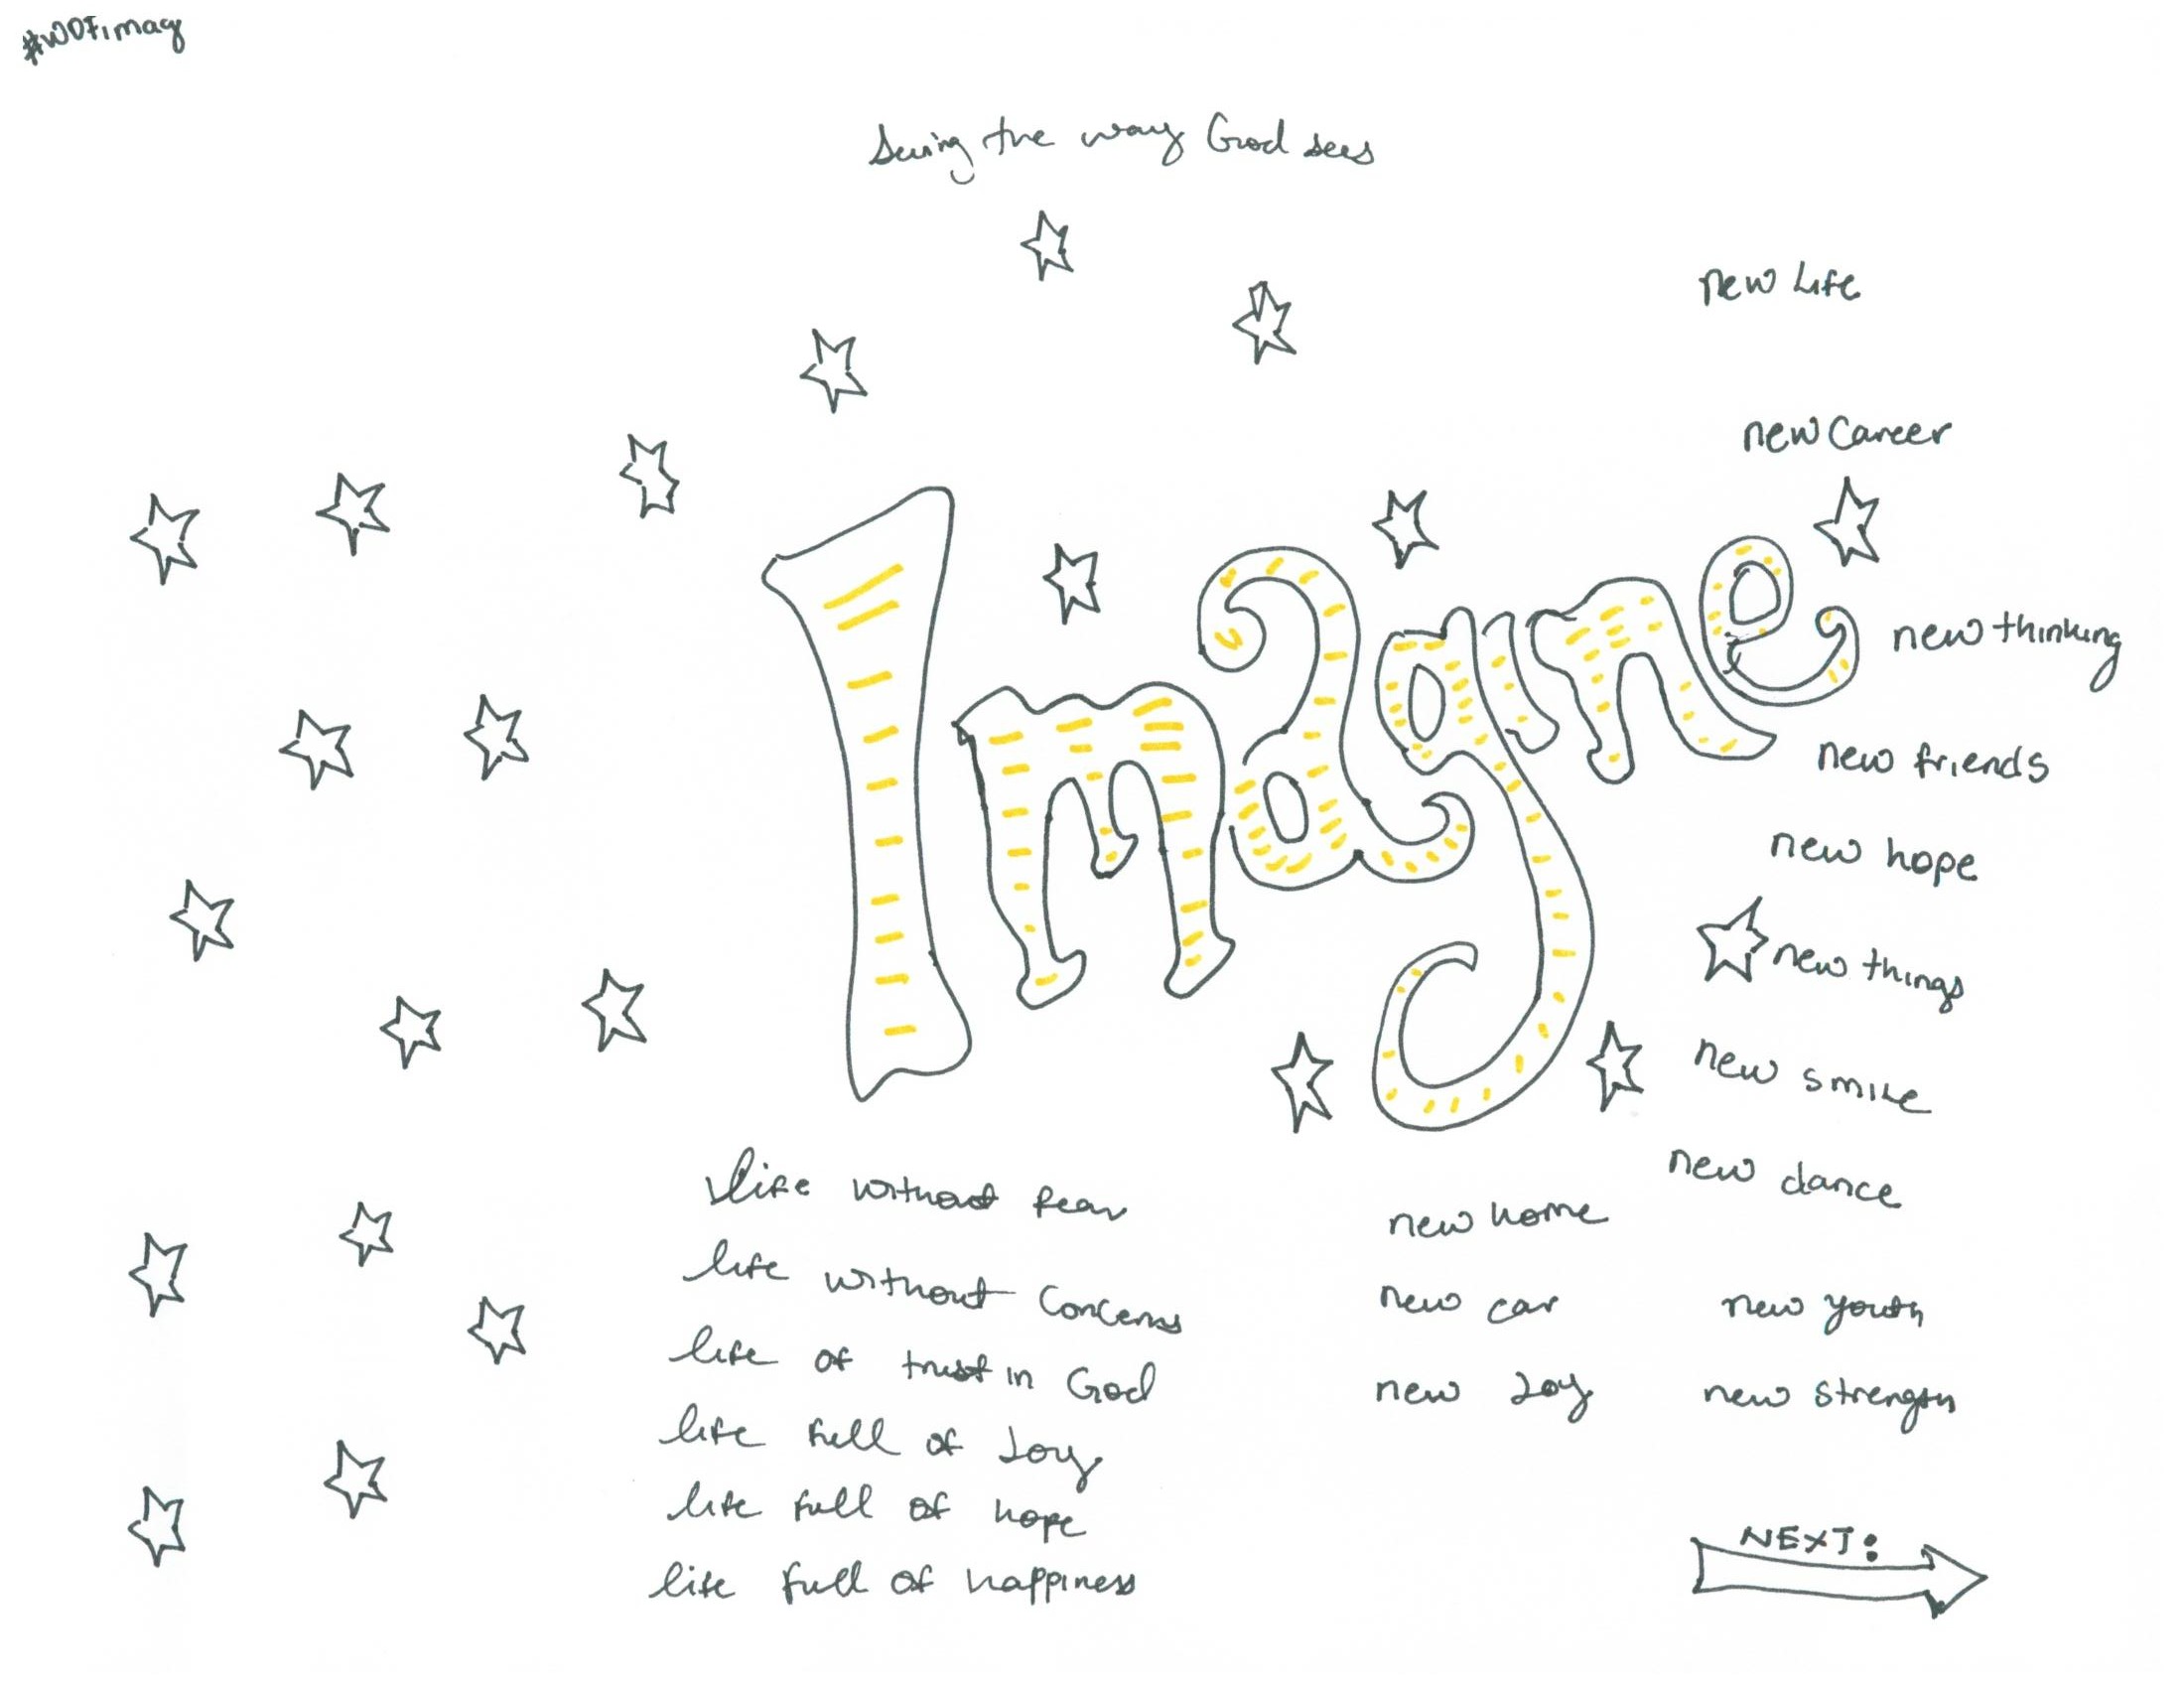 #WOFimag
Seeing the way God sees
new Life
new Career
Imagine
new thinking
new friends
new hope
new things
new smile
new dance
life without fear
life without concerns
life of trust in God
life full of Joy
life full of hope
life full of happiness
new home
new car
new Joy
new youth
new strength
NEXT: